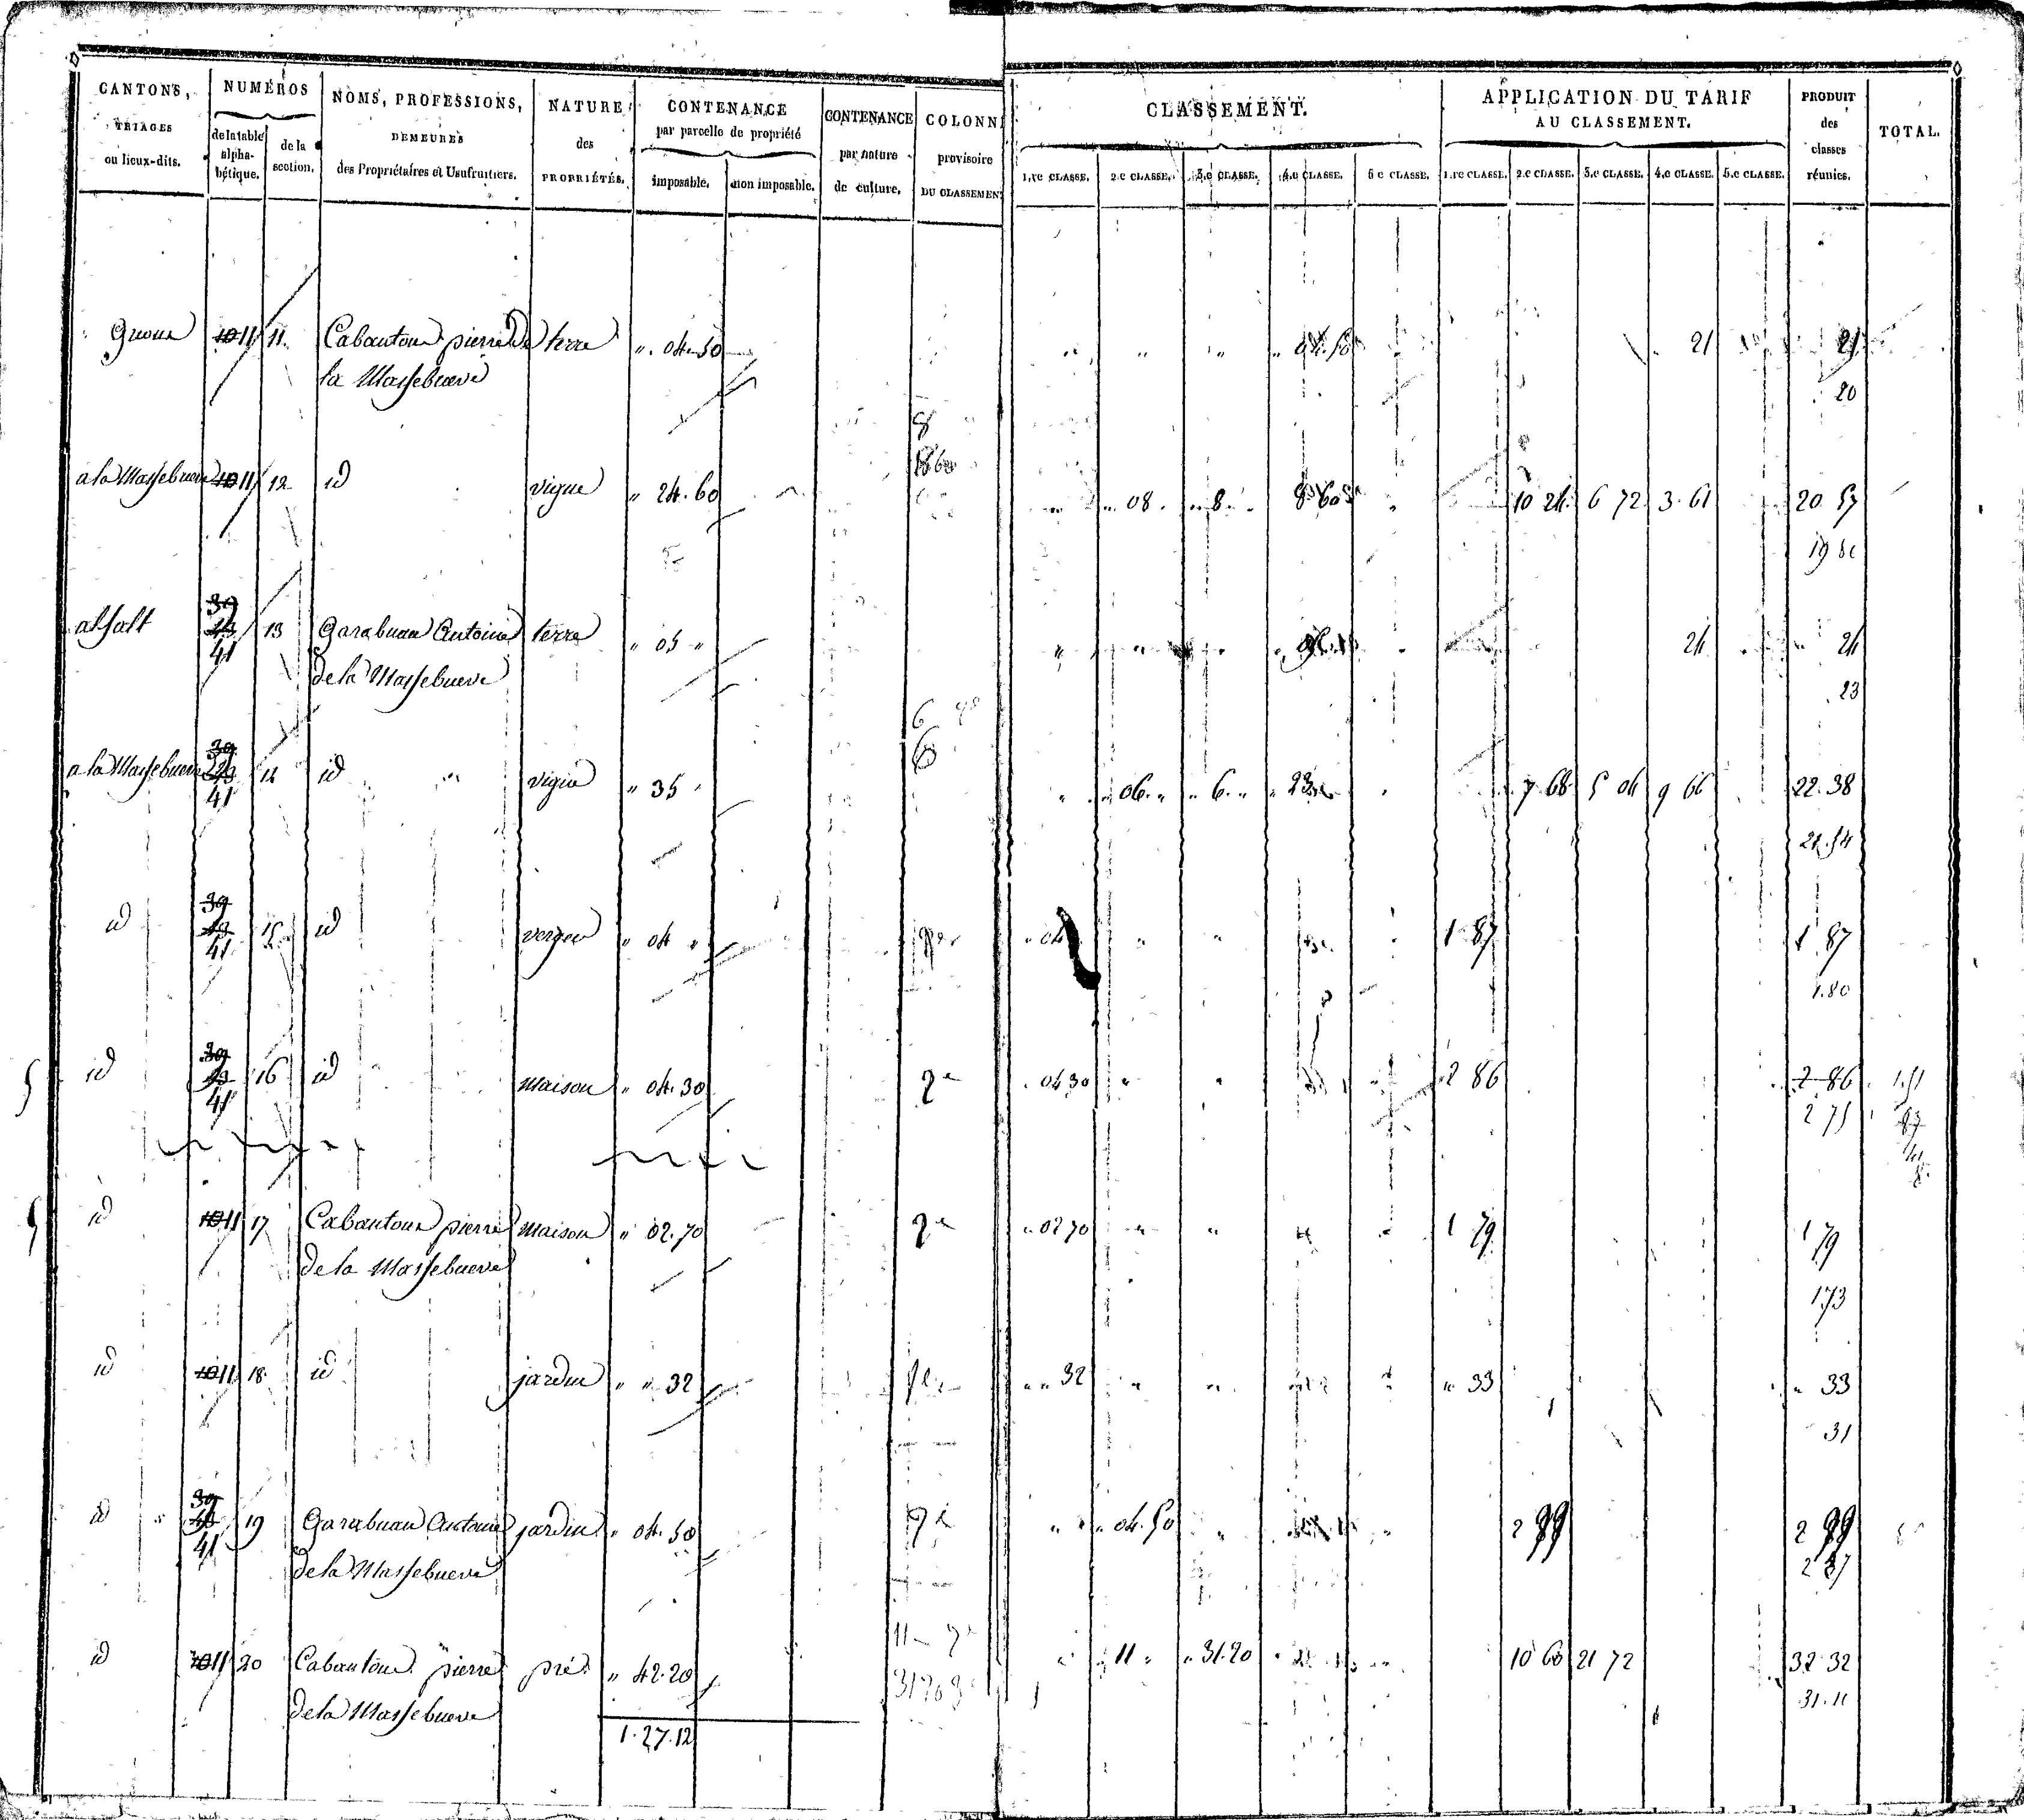 CANTONS, TRIAGES ou lieux-dits.
NUMÉROS
de la table alpha-bétique.
de la section.
NOMS, PROFESSIONS, DEMEURES des Propriétaires et Usufruitiers.
NATURE des PROPRIÉTÉS.
CONTENANCE par parcelle de propriété
imposable.
non imposable.
CONTENANCE par nature de culture.
COLONN provisoire DU CLASSEMEN
CLASSEMENT.
1.re CLASSE. 2.e CLASSE. 3.e CLASSE. 4.e CLASSE. 5.e CLASSE.
APPLICATION DU TARIF AU CLASSEMENT.
1.re CLASSE. 2.e CLASSE. 3.e CLASSE. 4.e CLASSE. 5.e CLASSE.
PRODUIT des classes réunies.
TOTAL.
10 11 11 Cabantous pierre De terre " 04.50 21 21
la Massebuove
20
a la Massebuove 10 11 12 id vigne " 24.60 " 08 " 8 " 8 60 10 24 6 72 3.61 20 57
alsalt 39 41 13 Garabuau Antoine terre " 05 " 24 24
de la Massebueve
23
a la Massebueve 39 41 14 id vigne " 35 " " 06 " " 6 " " 23 7 68 5 04 9 66 22.38
21.54
id 39 41 15 id verger " 04 " " 04 1 87 1 87
1.80
id 39 41 16 id Maison " 04.30 2e 04 30 2 86 2 86
2 75
id 10 11 17 Cabantous pierre Maison " 02.70 2e " 02 70 1 79 1 79
de la Massebueve
1.73
id 10 11 18 id jardin " " 32 " " 32 " 33 " 33
31
id 39 41 19 Garabuau Antoine jardin " 04.50 2e " 04.50 2 99 2 99
de la Massebueve
2 87
id 10 11 20 Cabantous pierre pré " 42.20 " 11 " " 31.20 10 60 21 72 32 32
de la Massebueve
31.11
1.27.12